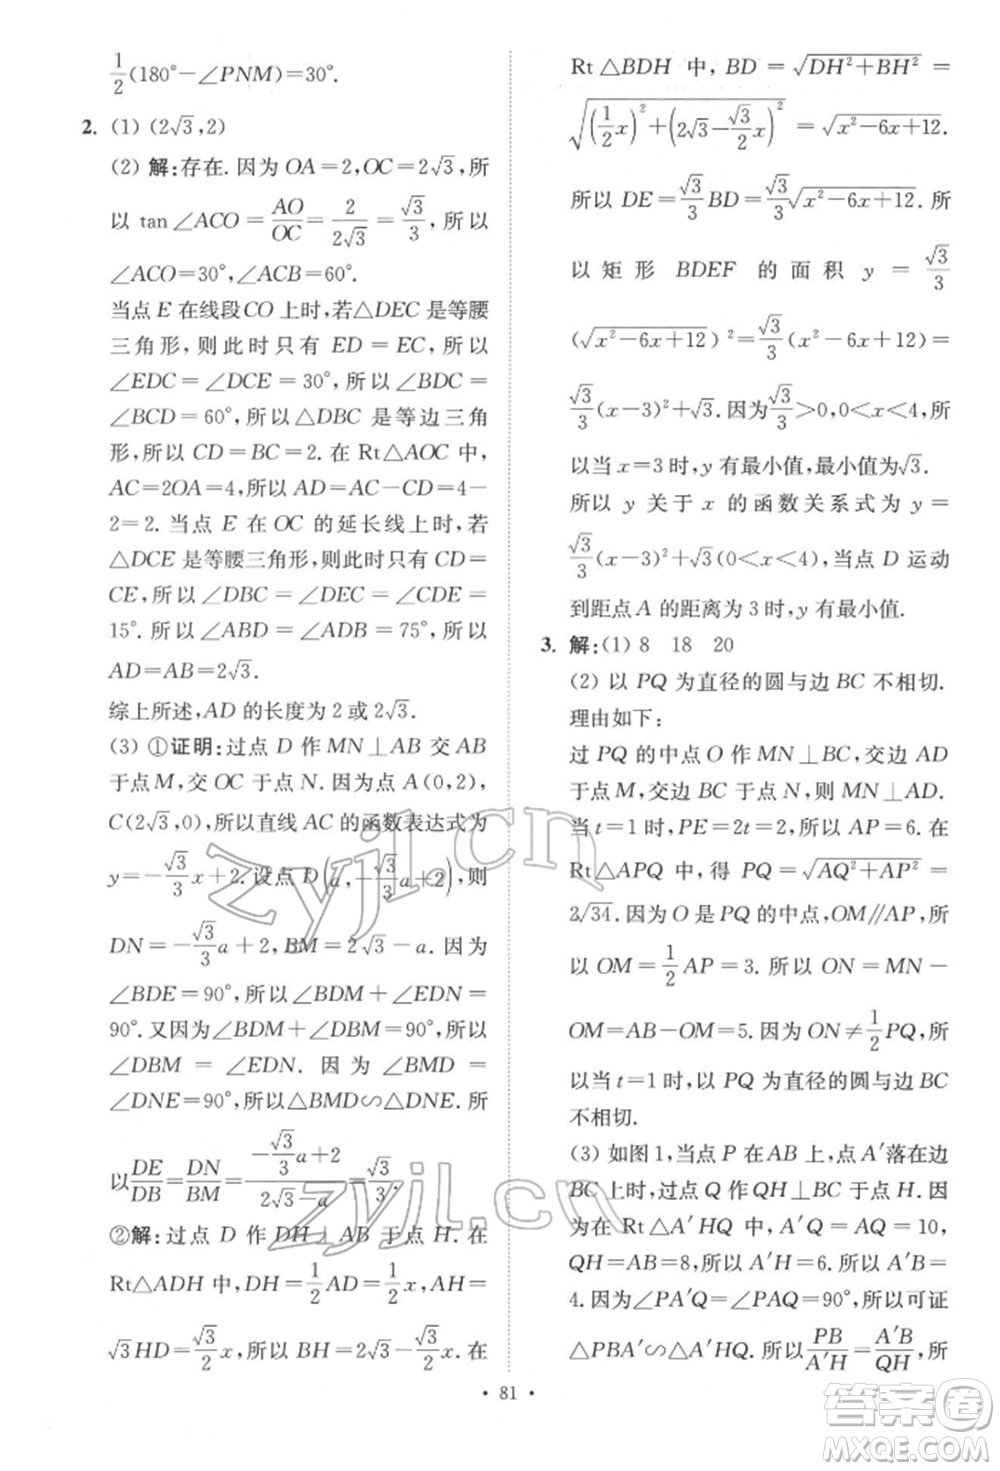 1/2(180°−∠PNM)=30°.
2. (1) (2√3,2)
(2) 解:存在. 因为 OA=2,OC=2√3,所
以 tan∠ACO=AO/OC=2/(2√3)=√3/3,所以
∠ACO=30°,∠ACB=60°.
当点 E 在线段CO 上时,若△DEC 是等腰
三角形,则此时只有 ED=EC,所以
∠EDC=∠DCE=30°,所以∠BDC=
∠BCD=60°,所以△DBC 是等边三角
形,所以 CD=BC=2. 在 Rt△AOC 中,
AC=2OA=4,所以 AD=AC−CD=4−
2=2. 当点 E 在 OC 的延长线上时,若
△DCE 是等腰三角形,则此时只有 CD=
CE,所以∠DBC=∠DEC=∠CDE=
15°. 所以∠ABD=∠ADB=75°,所以
AD=AB=2√3.
综上所述,AD 的长度为 2 或 2√3.
(3) ①证明:过点 D 作 MN⊥AB 交 AB
于点 M,交 OC 于点 N. 因为点 A(0,2),
C(2√3,0),所以直线 AC 的函数表达式为
y=−√3/3x+2. 设点 D(a,−√3/3a+2),则
DN=−√3/3a+2,BM=2√3−a. 因为
∠BDE=90°,所以∠BDM+∠EDN=
90°. 又因为∠BDM+∠DBM=90°,所以
∠DBM=∠EDN. 因为∠BMD=
∠DNE=90°,所以△BMD∽△DNE. 所
以DE/DB=DN/BM=(−√3/3a+2)/(2√3−a)=√3/3.
②解:过点 D 作 DH⊥AB 于点 H. 在
Rt△ADH 中,DH=1/2AD=1/2x,AH=
√3HD=√3/2x,所以 BH=2√3−√3/2x. 在
Rt△BDH 中,BD=√(DH²+BH²)=
√((1/2x)²+(2√3−√3/2x)²)=√(x²−6x+12).
所以 DE=√3/3BD=√3/3√(x²−6x+12). 所
以矩形 BDEF 的面积 y=√3/3
(√(x²−6x+12))²=√3/3(x²−6x+12)=
√3/3(x−3)²+√3. 因为√3/3>0,0<x<4,所
以当 x=3 时,y 有最小值,最小值为√3.
所以 y 关于 x 的函数关系式为 y=
√3/3(x−3)²+√3(0<x<4),当点 D 运动
到距点 A 的距离为 3 时,y 有最小值.
3. 解:(1) 8 18 20
(2) 以 PQ 为直径的圆与边 BC 不相切.
理由如下:
过 PQ 的中点 O 作 MN⊥BC,交边 AD
于点 M,交边 BC 于点 N,则 MN⊥AD.
当 t=1 时,PE=2t=2,所以 AP=6. 在
Rt△APQ 中,得 PQ=√(AQ²+AP²)=
2√34. 因为 O 是 PQ 的中点,OM∥AP,所
以 OM=1/2AP=3. 所以 ON=MN−
OM=AB−OM=5. 因为 ON≠1/2PQ,所
以当 t=1 时,以 PQ 为直径的圆与边 BC
不相切.
(3) 如图1,当点 P 在 AB 上,点 A′落在边
BC 上时,过点 Q 作 QH⊥BC 于点 H. 因
为在 Rt△A′HQ 中,A′Q=AQ=10,
QH=AB=8,所以 A′H=6. 所以 A′B=
4. 因为∠PA′Q=∠PAQ=90°,所以可证
△PBA′∽△A′HQ,所以PB/A′H=A′B/QH,所
· 81 ·
zyjl.cn
zyjl.cn
答案卷
MXQE.COM